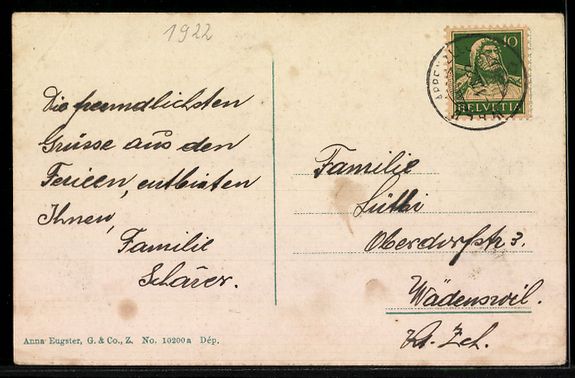 1922
Die freundlichsten
Grüsse aus den
Ferien, entbieten
Ihnen,
Familie
Schärer.
Anna Eugster, G. & Co., Z. No. 10200a Dép.
10
HELVETIA
Familie
Lüthi
Oberdorfstr 3.
Wädenswil.
Kt. Zch.